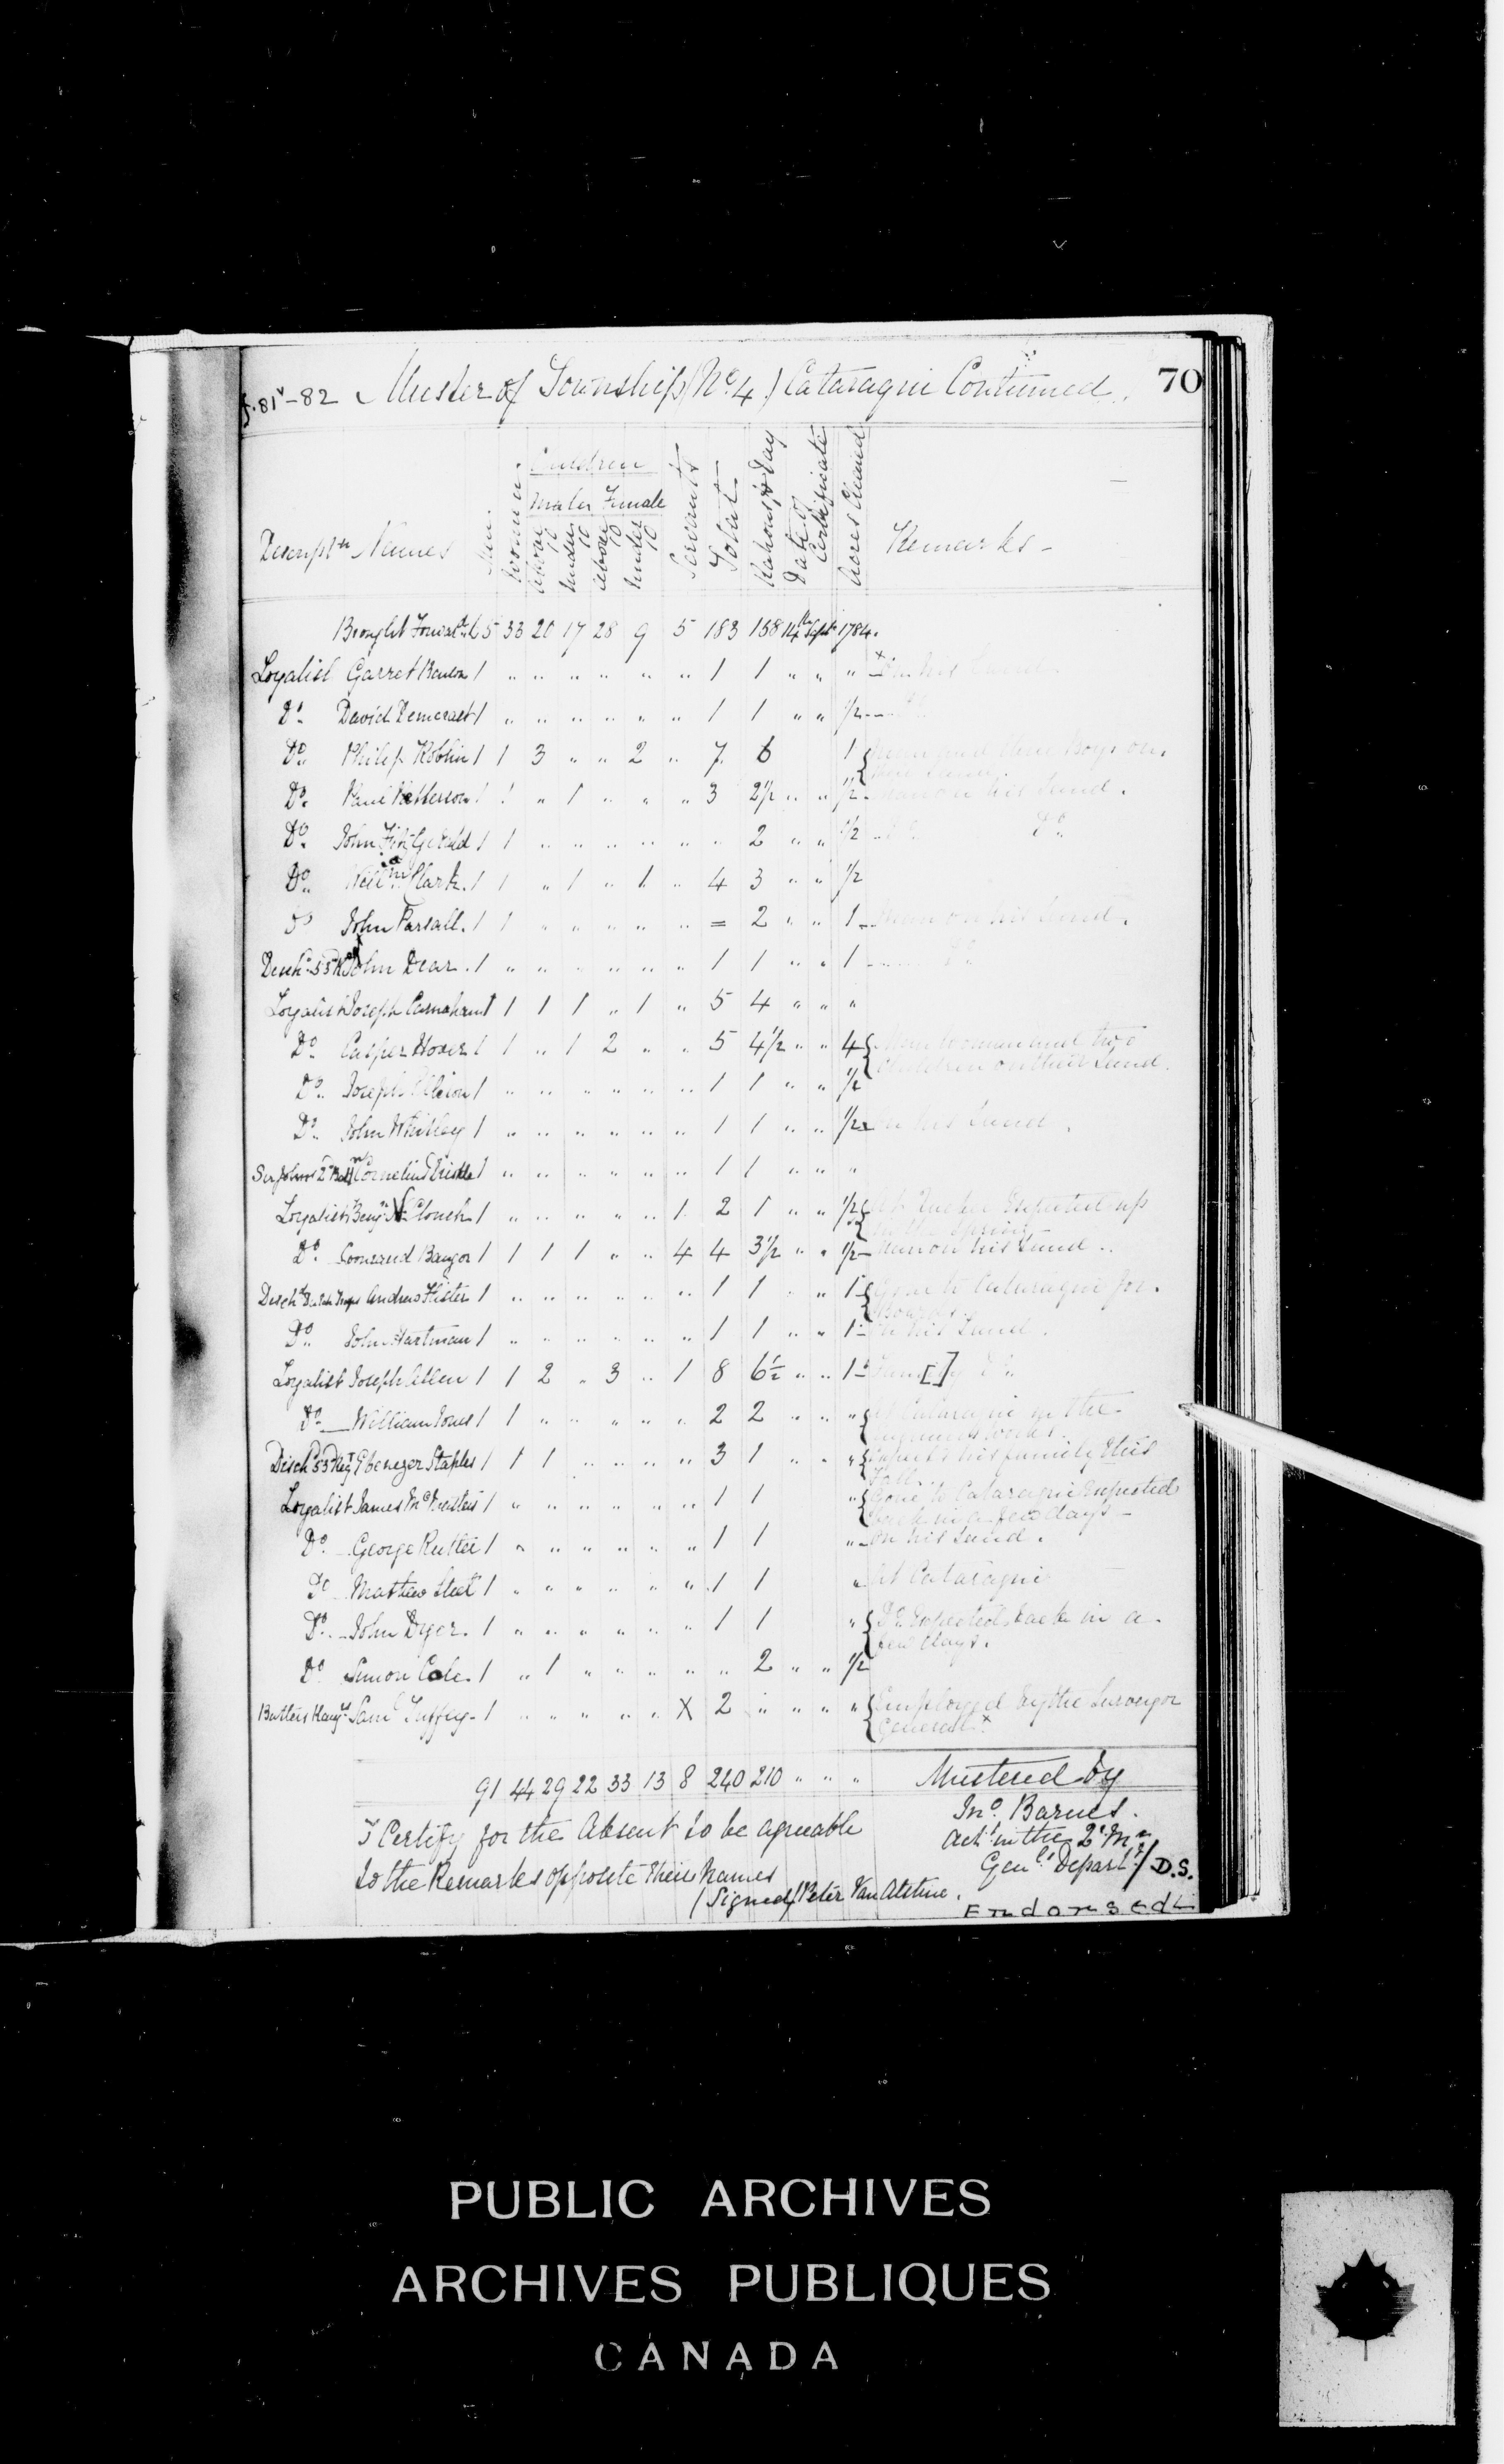 f.81v-82 Muster of Township (No. 4) Cataraqui Continued. 70
Children
Males Female
Descriptn Names Men. Women. above 10 under 10 above 10 under 10 Servants Total Rations pr Day Date of Certificate Acres Cleared Remarks-
Brought Forwd. 65 33 20 17 28 9 5 183 158 14th Sept 1784.
Loyalist Garret Benson 1 " " " " " " 1 1 " " " On his Land
Do. David Demorast 1 " " " " " " 1 1 " " 1/2
Do. Philip Roblin 1 1 3 " " 2 " 7 6 1 { and three Boys on
their Land.
Do. Paul Patterson 1 1 " 1 " " " 3 2 1/2 " " 1/2 - Man on his Land.
Do. John Fitz Gerald 1 1 " " " " " " 2 " " 1/2 Do. Do.
Do. Willm. Clark. 1 1 " 1 " 1 " 4 3 " " 1/2
Do John Parsall. 1 1 " " " " " = 2 " " 1 - Man on his Land.
Disch. 53d Rt John Dear. 1 " " " " " " 1 1 " " 1 Do.
Loyalist Joseph Carnahan 1 1 1 1 " 1 " 5 4 " " "
Do. Casper Hover 1 1 " 1 2 " " 5 4 1/2 " " 4 { Man Woman and two
Children on their Land.
Do. Joseph Allison 1 " " " " " " 1 1 " " 1/2
Do. John Whitley 1 " " " " " " 1 1 " " 1/2 - On his Land.
Sir Johns 2d Batt Cornelius 1 " " " " " " 1 1 " " "
Loyalist Benjn. Clouch 1 " " " " " 1 2 1 " " 1/2 { At Quebec Expected up
in the Spring
Do Coonrand Bangor 1 1 1 1 " " 4 4 3 1/2 " " 1/2 - Man on his Land.
Dischd Dutch Troops Andrew Hister 1 " " " " " " 1 1 " " 1 { Gone to Cataraqui for
Boards.
Do. John Hartman 1 " " " " " " 1 1 " " 1 - On his Land.
Loyalist Joseph Allen 1 1 2 " 3 " 1 8 6 1/2 " " 1 - Family [ ] Do.
Do. William Jones 1 1 " " " " " 2 2 " " " { At Cataraqui in the
Engineers Works.
Dischd 53d Regt Ebenezer Staples 1 1 1 " " " " 3 1 " " " { Expects his family this
Fall.
Loyalist James McMasters 1 " " " " " " 1 1 " { Gone to Cataraqui Expected
back in a few days -
Do. George Rutter 1 " " " " " " 1 1 " - On his Land.
Do Mathew Steel 1 " " " " " " 1 1 " At Cataraqui
Do. John Dyer. 1 " " " " " " 1 1 " { Do. Expected back in a
few days.
Do Simon Cole. 1 " 1 " " " " " 2 " " 1/2
Butlers Rangs. Saml Tuffey. 1 " " " " " X 2 " " " " { Employed by the Surveyor
General x
91 44 29 22 33 13 8 240 210 " " " Mustered by
Jno. Barnes.
I Certify for the Absent to be agreeable
Actt. in the Q.r Mr
to the Remarks opposite their Names
Genls. Departt. / D.S.
(Signed) Peter Van Alstine.
Endorsed:
PUBLIC ARCHIVES
ARCHIVES PUBLIQUES
CANADA